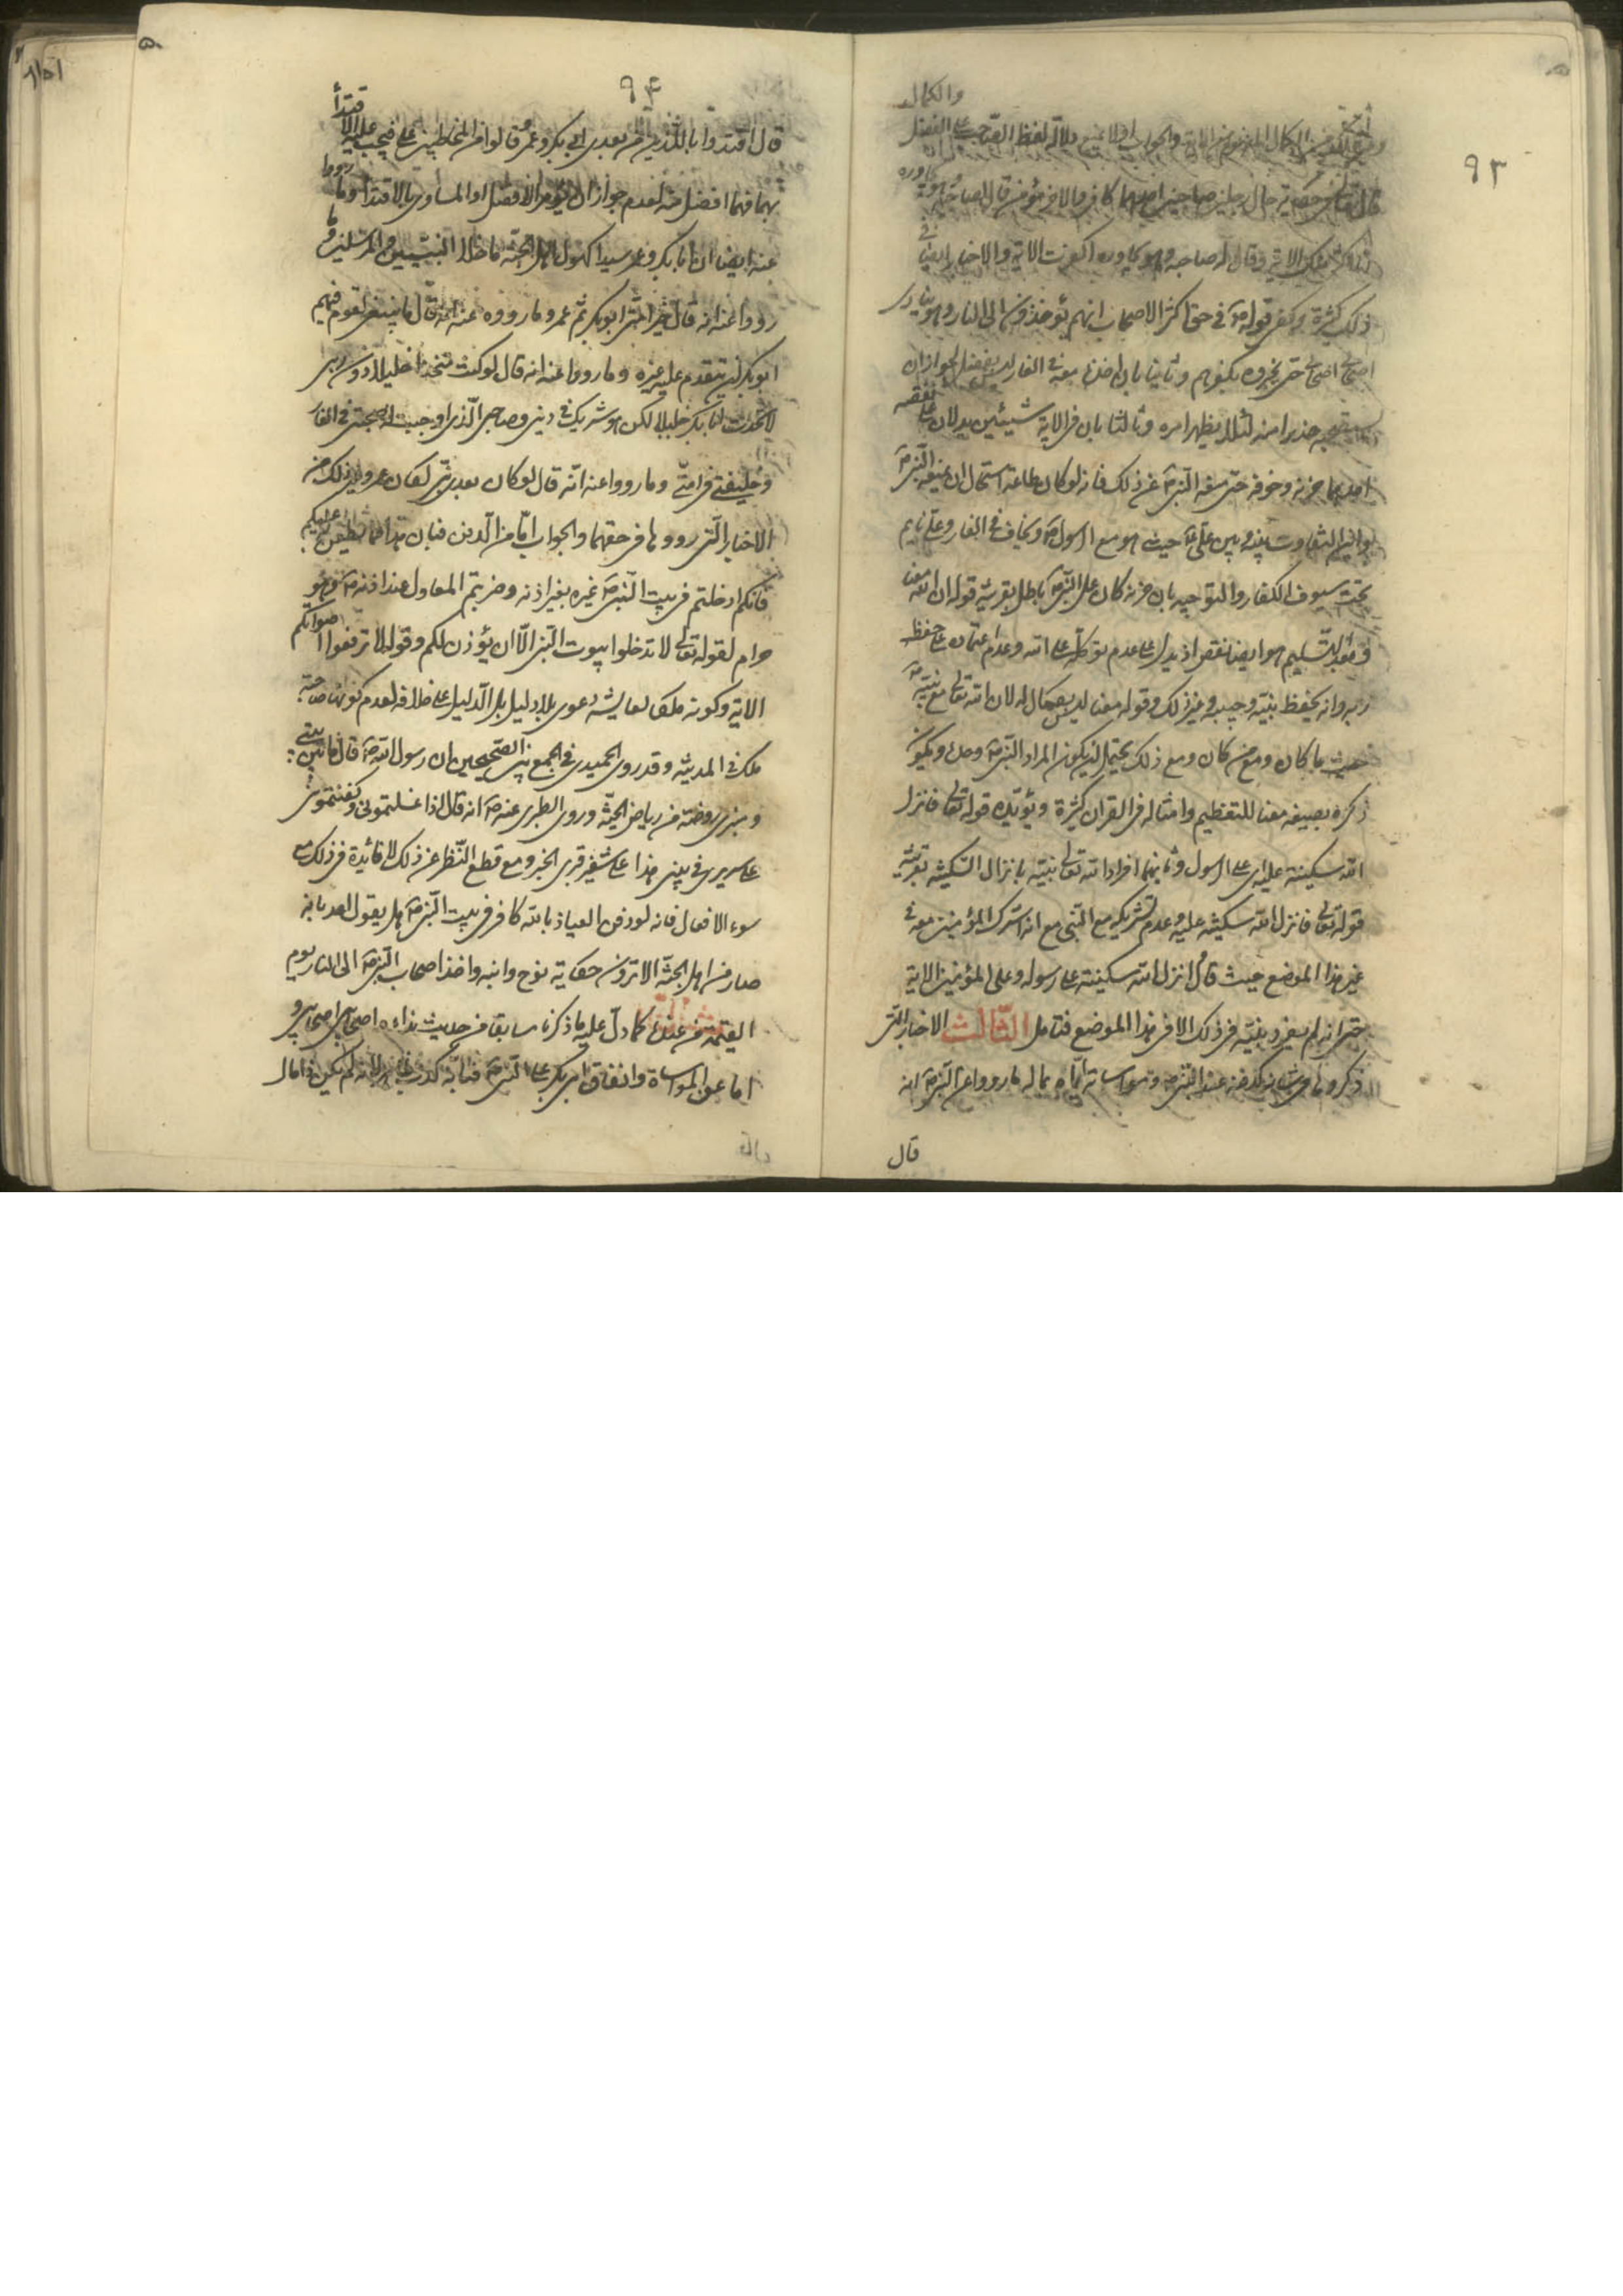 ٩٣
والكمال
دلالة لفظ الصاحب على الفضل
قال تعالى حكاية حال رجلين صاحبين احدهما كافر والاخر مؤمن قال لصاحبه وهو يحاوره
وقال له صاحبه وهو يحاوره اكفرت الاية والاخبار ايضا في
ذلك كثيرة ويكفى قوله ص في حق اكثر الاصحاب انهم يؤخذون الى النار وهو ينادى
اصحابى اصحابى حتى يخبروه بكفرهم وثانيا بان معه في الغار ليس بفضل لجواز ان
حذرا منه لئلا يظهر امره وثالثا بان في الاية شيئين يدلان على نقصه
احدهما حزنه وخوفه حتى منعه النبى ص عن ذلك فانه لو كان طاعة استحال ان يمنعه النبى ص
التفاوت بينه وبين على ع حيث هو مع الرسول ص ويخاف في الغار وعلى نايم
تحت سيوف الكفار والتوجيه بان حزنه كان على النبى ص باطل بقرينة قوله ان الله معنا
وبعد التسليم هو ايضا نقص اذ يدل على عدم توكله على الله وعدم اعتماده على حفظ
ربه وانه يحفظ نبيه وحبيبه وغير ذلك وقوله معنا ليس بكمال له لان الله تعالى مع نبيه ص
حيث ما كان ومع من كان ومع ذلك يحتمل ان يكون المراد النبى ص وحده ويكون
ذكره بصيغة معنا للتعظيم وامثاله في القران كثيرة ويؤيده قوله تعالى فانزل
الله سكينته عليه اى على الرسول وثانيهما افراد الله تعالى نبيه بانزال السكينة بقرينة
قوله تعالى فانزل الله سكينته عليه وعدم تشريكه مع النبى مع انه اشرك المؤمنين معه في
غير هذا الموضع حيث قال انزل الله سكينته على رسوله وعلى المؤمنين الاية
حتى انه لم يفرد بنيته في ذلك الا في هذا الموضع فتامل الثالث الاخبار التى
ذكروها في شان عند النبى ص ومواساته اياه بماله ما رووا عن النبى ص انه
قال
٩٤
قال اقتدوا باللذين من بعدى ابى بكر وعمر قالوا من المخاطبين على فيجب عليه الاقتدا
بهما فهما افضل منه لعدم جواز ان يؤمر الافضل او المساوى بالاقتدا وما رووا
عنه ايضا ان ابا بكر وعمر سيدا كهول اهل الجنة ما خلا النبيين والمرسلين وما
رووا عنه انه قال خير امتى ابو بكر ثم عمر وما رووه عنه انه قال ما ينبغى لقوم فيهم
ابو بكر ان يتقدم عليه غيره وما رووا عنه انه قال لو كنت متخذا خليلا دون ربى
لاتخذت ابا بكر خليلا لكن هو شريك في دينى وصاحبى الذى اوجبت له صحبتى في الغار
وخليفتى في امتى وما رووا عنه انه قال لو كان بعدى نبى لكان عمر وغير ذلك من
الاخبار التى رووها في حقهما والجواب اما من الدفن فبان هذا
فانكم ادخلتم في بيت النبى ص غيره بغير اذنه وضربتم المعاول عند اذنه ص وهو
حرام لقوله تعالى لا تدخلوا بيوت النبى الا ان يؤذن لكم وقوله لا ترفعوا اصواتكم
الاية وكونه ملكا لعايشة دعوى بلا دليل بل الدليل على خلافه لعدم كونها صاحبة
ملك في المدينة وقد روى الحميدى في الجمع بين الصحيحين ان رسول الله ص قال ما بين بيتى
ومنبرى روضة من رياض الجنة وروى الطبرى عنه ص انه قال اذا غسلتمونى وكفنتمونى
على سريرى في بيتى هذا على شفير قبرى الخبر ومع قطع النظر عن ذلك لا فائدة في ذلك مع
سوء الافعال فانه لو دفن العياذ بالله كافر في بيت النبى ص هل يقول احد بانه
صار من اهل الجنة الا ترون حكاية نوح وابنه واخذ اصحاب النبى ص الى النار يوم
القيمة من عنده كما دل عليه ما ذكرنا سابقا من حديث نداءه اصحابى اصحابى و
اما عن المواساة وانفاق ابى بكر على النبى ص فبانه كذب ظاهر لانه لم يكن ذا مال